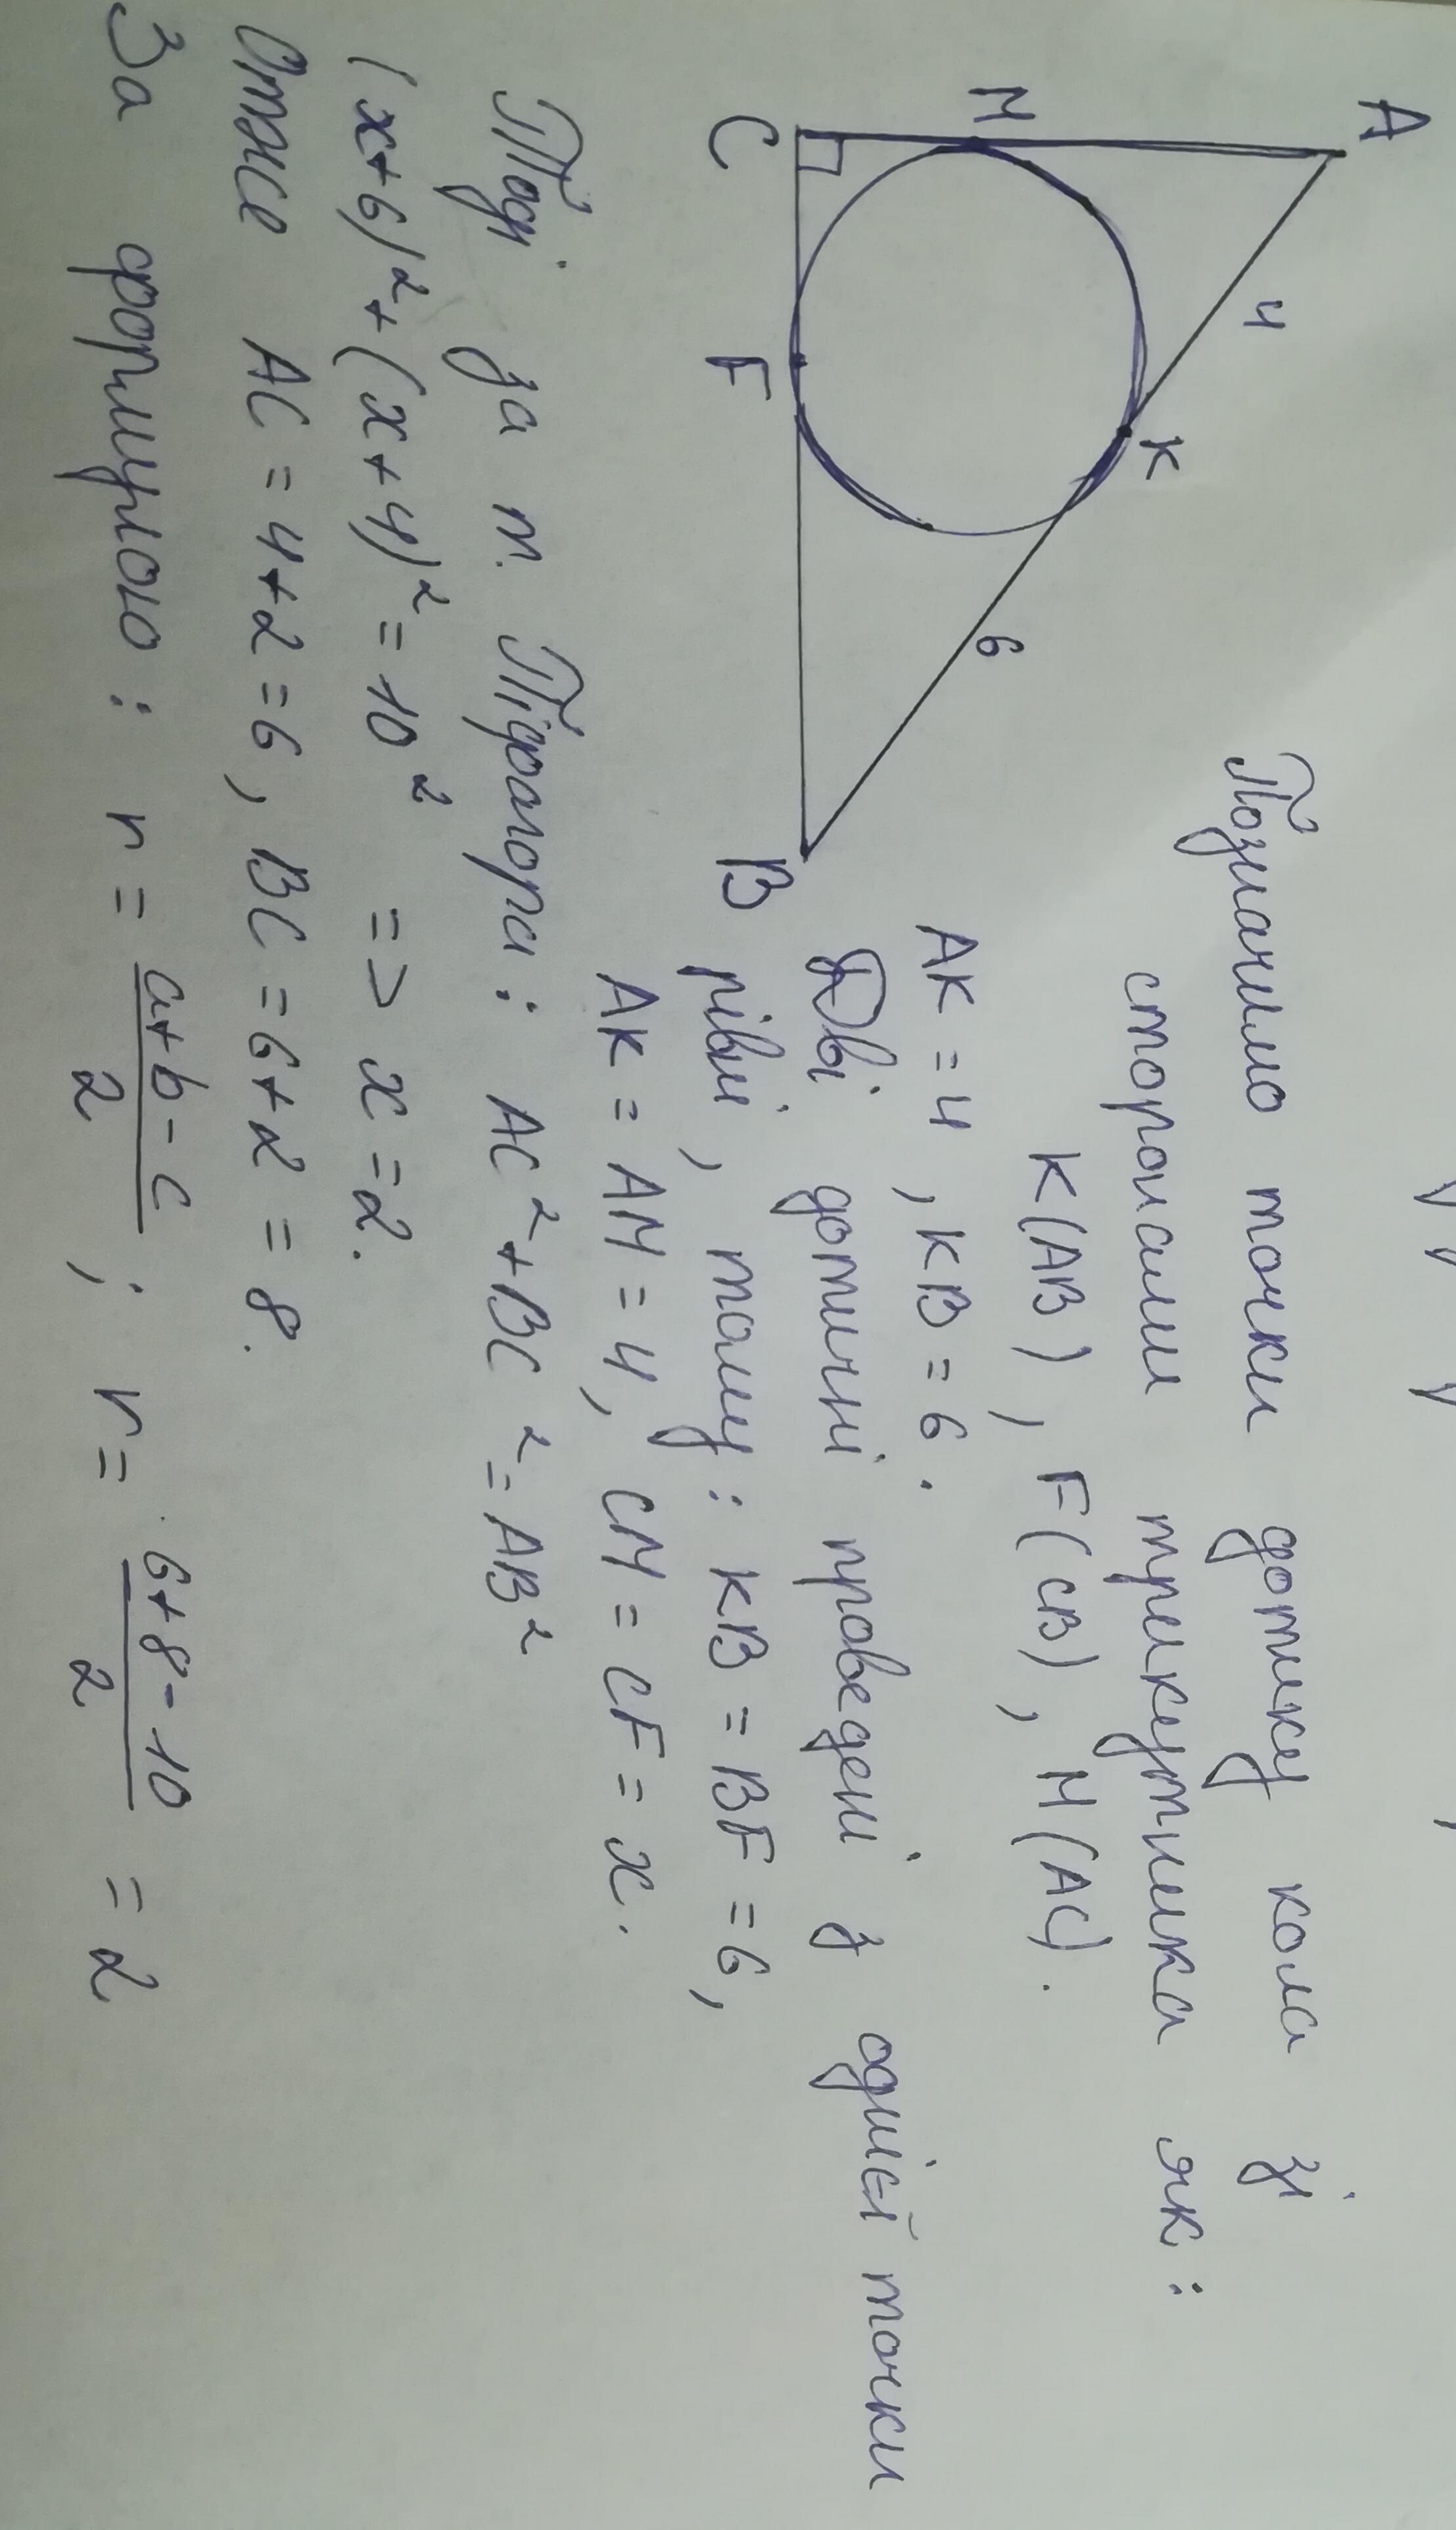 Позначимо точки дотику кола зі
сторонами трикутника як:
K(AB), F(CB), M(AC).
AK = 4, KB = 6.
Дві дотичні проведені з однієї точки
рівні, тому: KB = BF = 6,
AK = AM = 4, CM = CF = x.
A
4
K
M
6
C
F
B
Тоді за т. Піфагора: AC² + BC² = AB²
(x+6)² + (x+4)² = 10² => x = 2.
Отже AC = 4+2 = 6, BC = 6+2 = 8.
За формулою: r = (a+b-c)/2; r = (6+8-10)/2 = 2